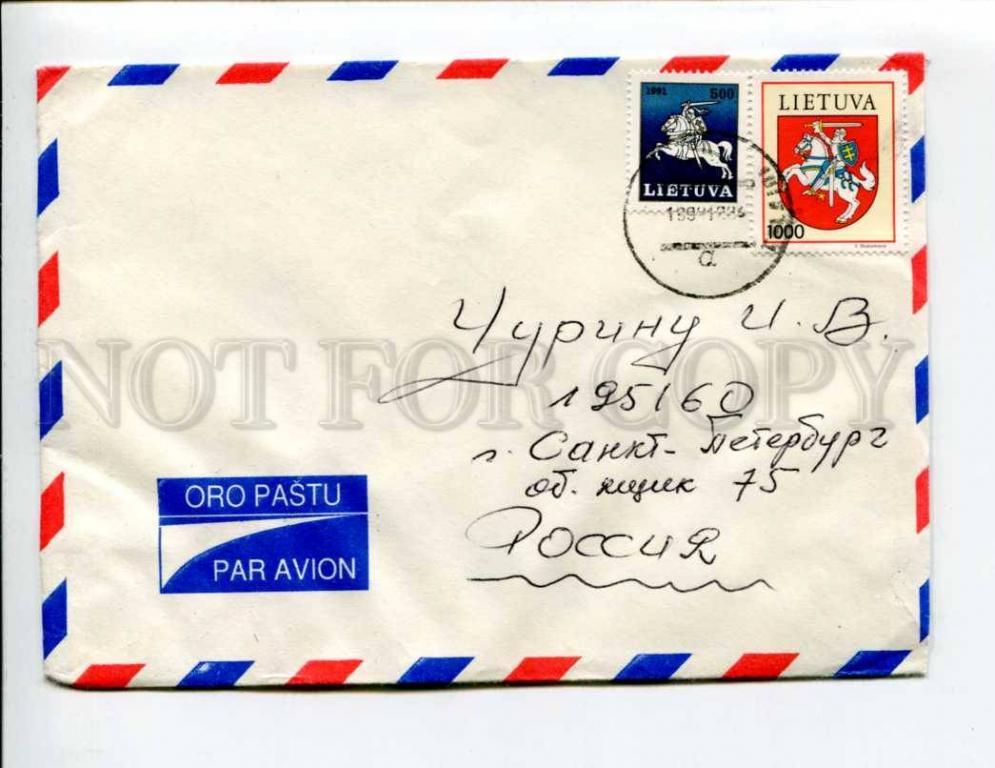 1991 500
LIETUVA
LIETUVA
1000
Чурину И. В.
NOT FOR COPY
195160
г. Санкт-Петербург
аб. ящик 75
Россия
ORO PAŠTU
PAR AVION